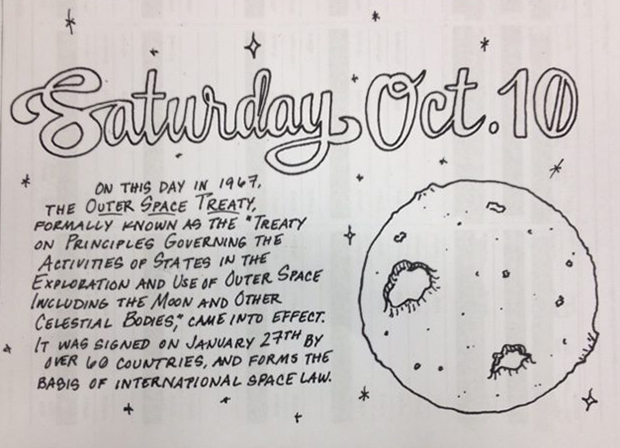 Saturday Oct. 10
ON THIS DAY IN 1967,
THE OUTER SPACE TREATY,
FORMALLY KNOWN AS THE "TREATY
ON PRINCIPLES GOVERNING THE
ACTIVITIES OF STATES IN THE
EXPLORATION AND USE OF OUTER SPACE
INCLUDING THE MOON AND OTHER
CELESTIAL BODIES," CAME INTO EFFECT.
IT WAS SIGNED ON JANUARY 27TH BY
OVER 60 COUNTRIES, AND FORMS THE
BASIS OF INTERNATIONAL SPACE LAW.